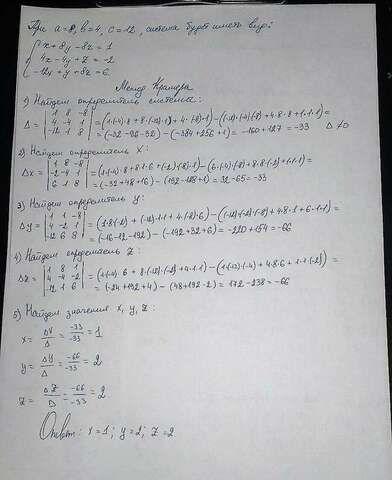 При a=8, b=4, c=12, система будет иметь вид:
{ x+8y-8z=1
4x-4y+z=-2
-12x+y+8z=6
Метод Крамера
1) Найдем определитель системы:
Δ = | 1 8 -8 | 4 -4 1 | -12 1 8 | = (1·(-4)·8+8·(-12)·1+4·(-8)·1)-((-12)·(-4)·(-8)+4·8·8+1·1·1)=
=(-32-96-32)-(-384+256+1)=-160+127=-33 Δ≠0
2) Найдем определитель x:
Δx = | 1 8 -8 | -2 -4 1 | 6 1 8 | = (1·(-4)·8+8·1·6+(-2)·(-8)·1)-(6·(-4)·(-8)+8·8·(-2)+1·1·1)=
=(-32+48+16)-(192-128+1)=32-65=-33
3) Найдем определитель y:
Δy = | 1 1 -8 | 4 -2 1 | -12 6 8 | = (1·8·(-2)+(-12)·1·1+4·(-8)·6)-((-12)·(-2)·(-8)+4·8·1+6·1·1)=
=(-16-12-192)-(-192+32+6)=-220+154=-66
4) Найдем определитель z:
Δz = | 1 8 1 | 4 -4 -2 | -12 1 6 | = (1·(-4)·6+8·(-12)·(-2)+4·1·1)-(1·(-12)·(-4)+4·8·6+1·1·(-2))=
=(-24+192+4)-(48+192-2)=172-238=-66
5) Найдем значения x, y, z:
x = Δx/Δ = -33/-33 = 1
y = Δy/Δ = -66/-33 = 2
z = Δz/Δ = -66/-33 = 2
Ответ: x=1; y=2; z=2